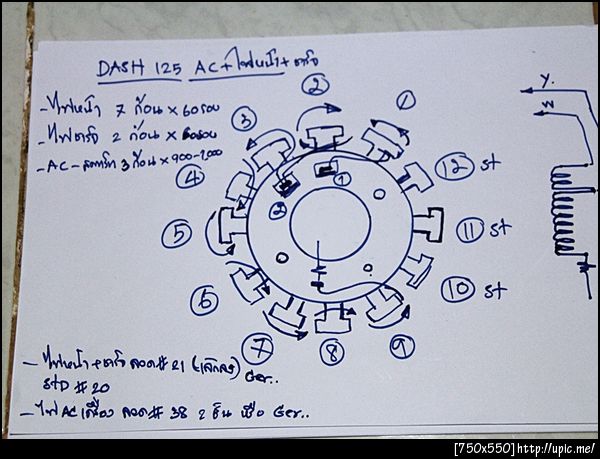 DASH 125 AC+ไฟหน้า+ชาร์จ
- ไฟหน้า 7 ก้อน x 60 รอบ
- ไฟชาร์จ 2 ก้อน x 60รอบ
- AC - สตาร์ท 3 ก้อน x 900-1,000
Y.
W
1
2
3
4
5
6
7
8
9
10 st
11 st
12 st
1
2
- ไฟหน้า+ชาร์จ ลวด# 21 Ger..
STD # 20
- ไฟ AC เครื่อง ลวด# 38 2 Ger..
[750x550]http://upic.me/